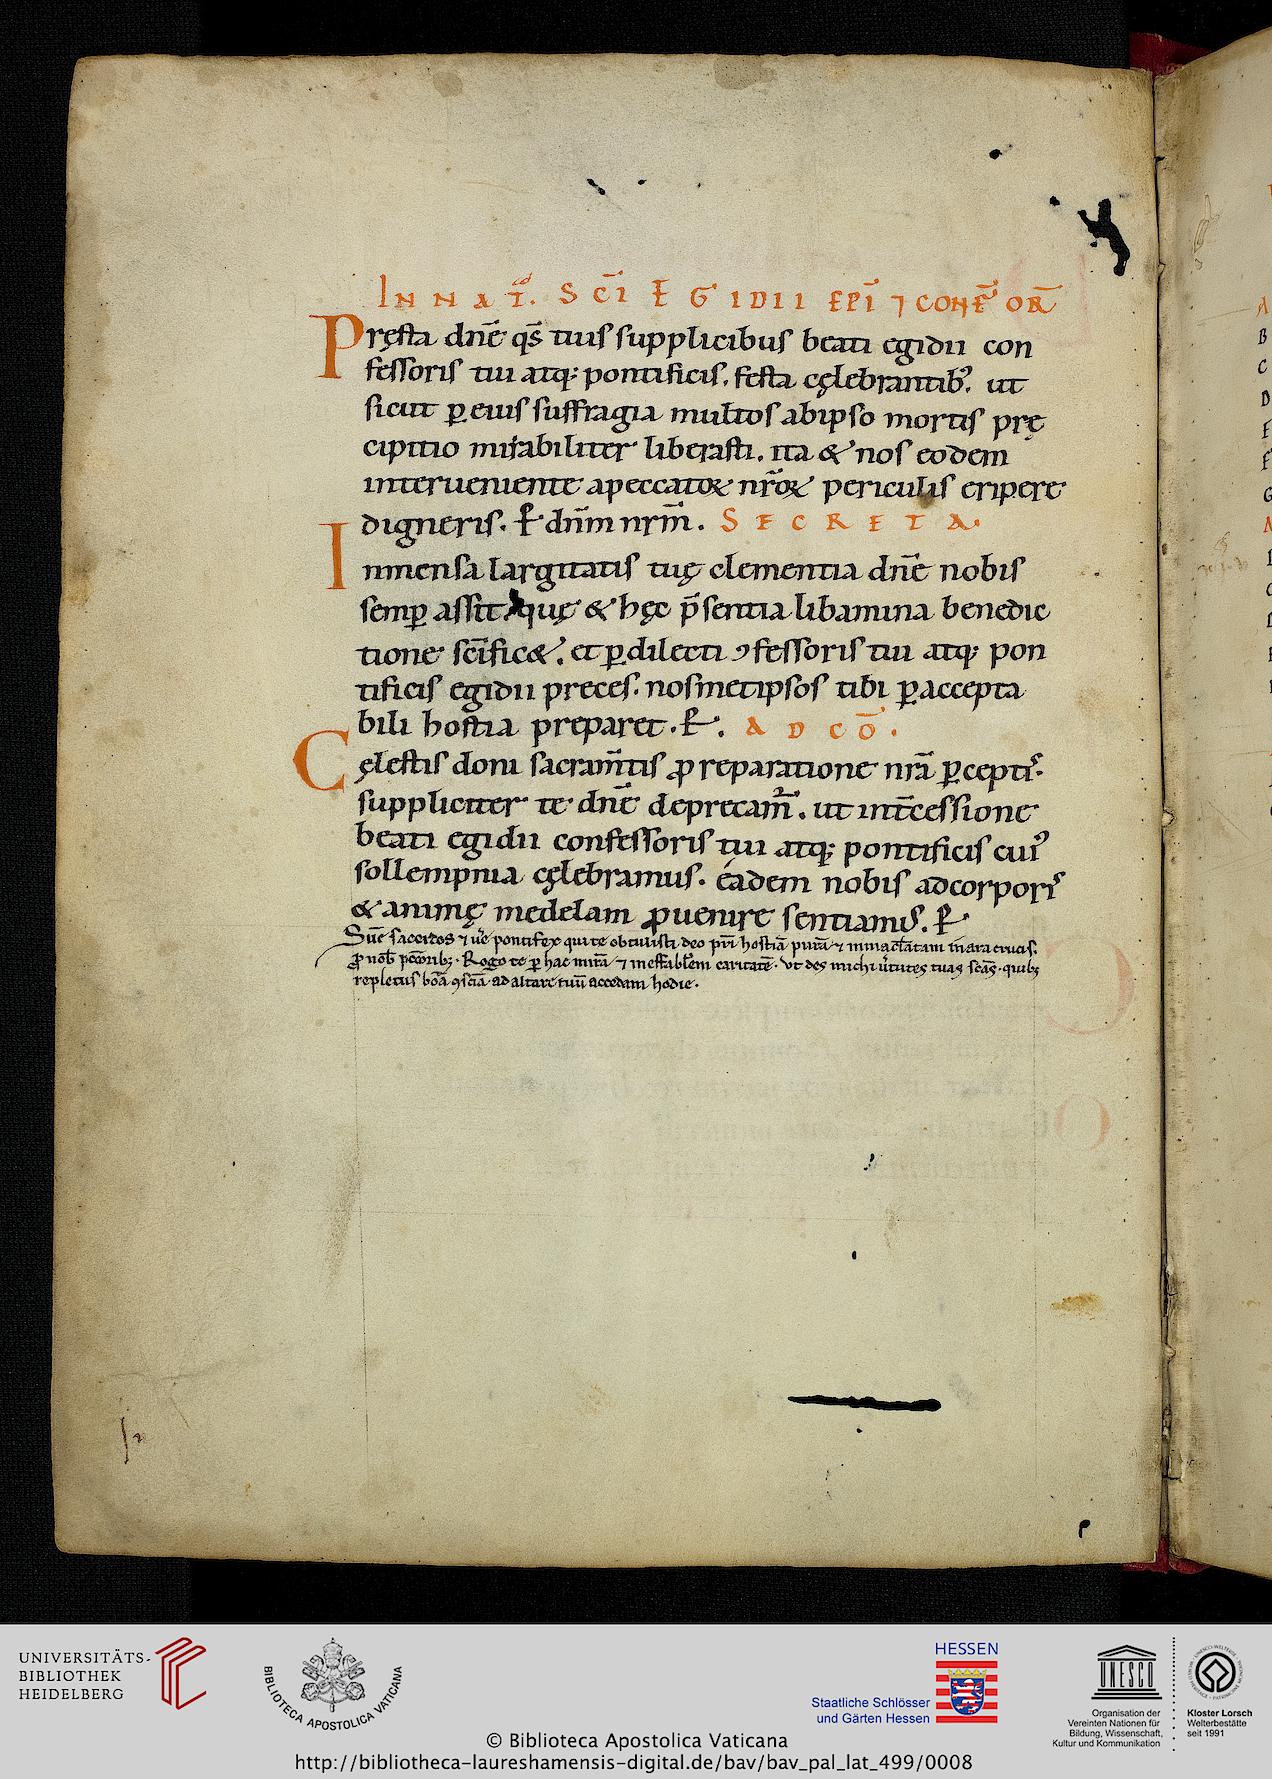 IN NAT̄. SC̄I EGIDII EPĪ ⁊ CONF̄ OR̄
Pręsta dn̄e qs̄ tuis supplicibus beati egidii con
fessoris tui atq; pontificis. festa cęlebrantib'. ut
sicut ꝑ eius suffragia multos ab ipso mortis prę
cipitio mirabiliter liberasti. ita & nos eodem
interueniente a peccatoꝝ nr̄oꝝ periculis eripere
digneris. P̄ dn̄m nr̄m. SECRETA.
Inmensa largitatis tuę clementia dn̄e nobis
semꝑ assit quę & hęc p̄sentia libamina benedic
tione sc̄ific&. et ꝑ dilecti ꝯfessoris tui atq; pon
tificis egidii preces. nosmetipsos tibi ꝑ accepta
bili hostia preparet. P̄. AD CŌ.
Cęlestis doni sacram̄tis ꝓ reparatione nr̄a ꝑcepti'.
suppliciter te dn̄e deprecam̄. ut int̄cessione
beati egidii confessoris tui atq; pontificis cui'
sollempnia cęlebramus. eadem nobis ad corpori'
& animę medelam ꝓuenire sentiam'. P̄
Sūme sac̄cdos ⁊ ūe pontifex qui te obtulisti deo pr̄i hostiā purā ⁊ īmaculatam in ara crucis.
ꝓ nob̄ pc̄orib;. Rogo te ꝑ hāc mirā ⁊ ineffabil̄em caritatē. Vt des michi ūtutes tuas sc̄as. quib;
repletus bōa ꝯsciā ad altare tuū accedam hodie.
UNIVERSITÄTS-
BIBLIOTHEK
HEIDELBERG
BIBLIOTECA APOSTOLICA VATICANA
HESSEN
Staatliche Schlösser
und Gärten Hessen
UNESCO
Organisation der
Vereinten Nationen für
Bildung, Wissenschaft,
Kultur und Kommunikation
Kloster Lorsch
Welterbestätte
seit 1991
© Biblioteca Apostolica Vaticana
http://bibliotheca-laureshamensis-digital.de/bav/bav_pal_lat_499/0008